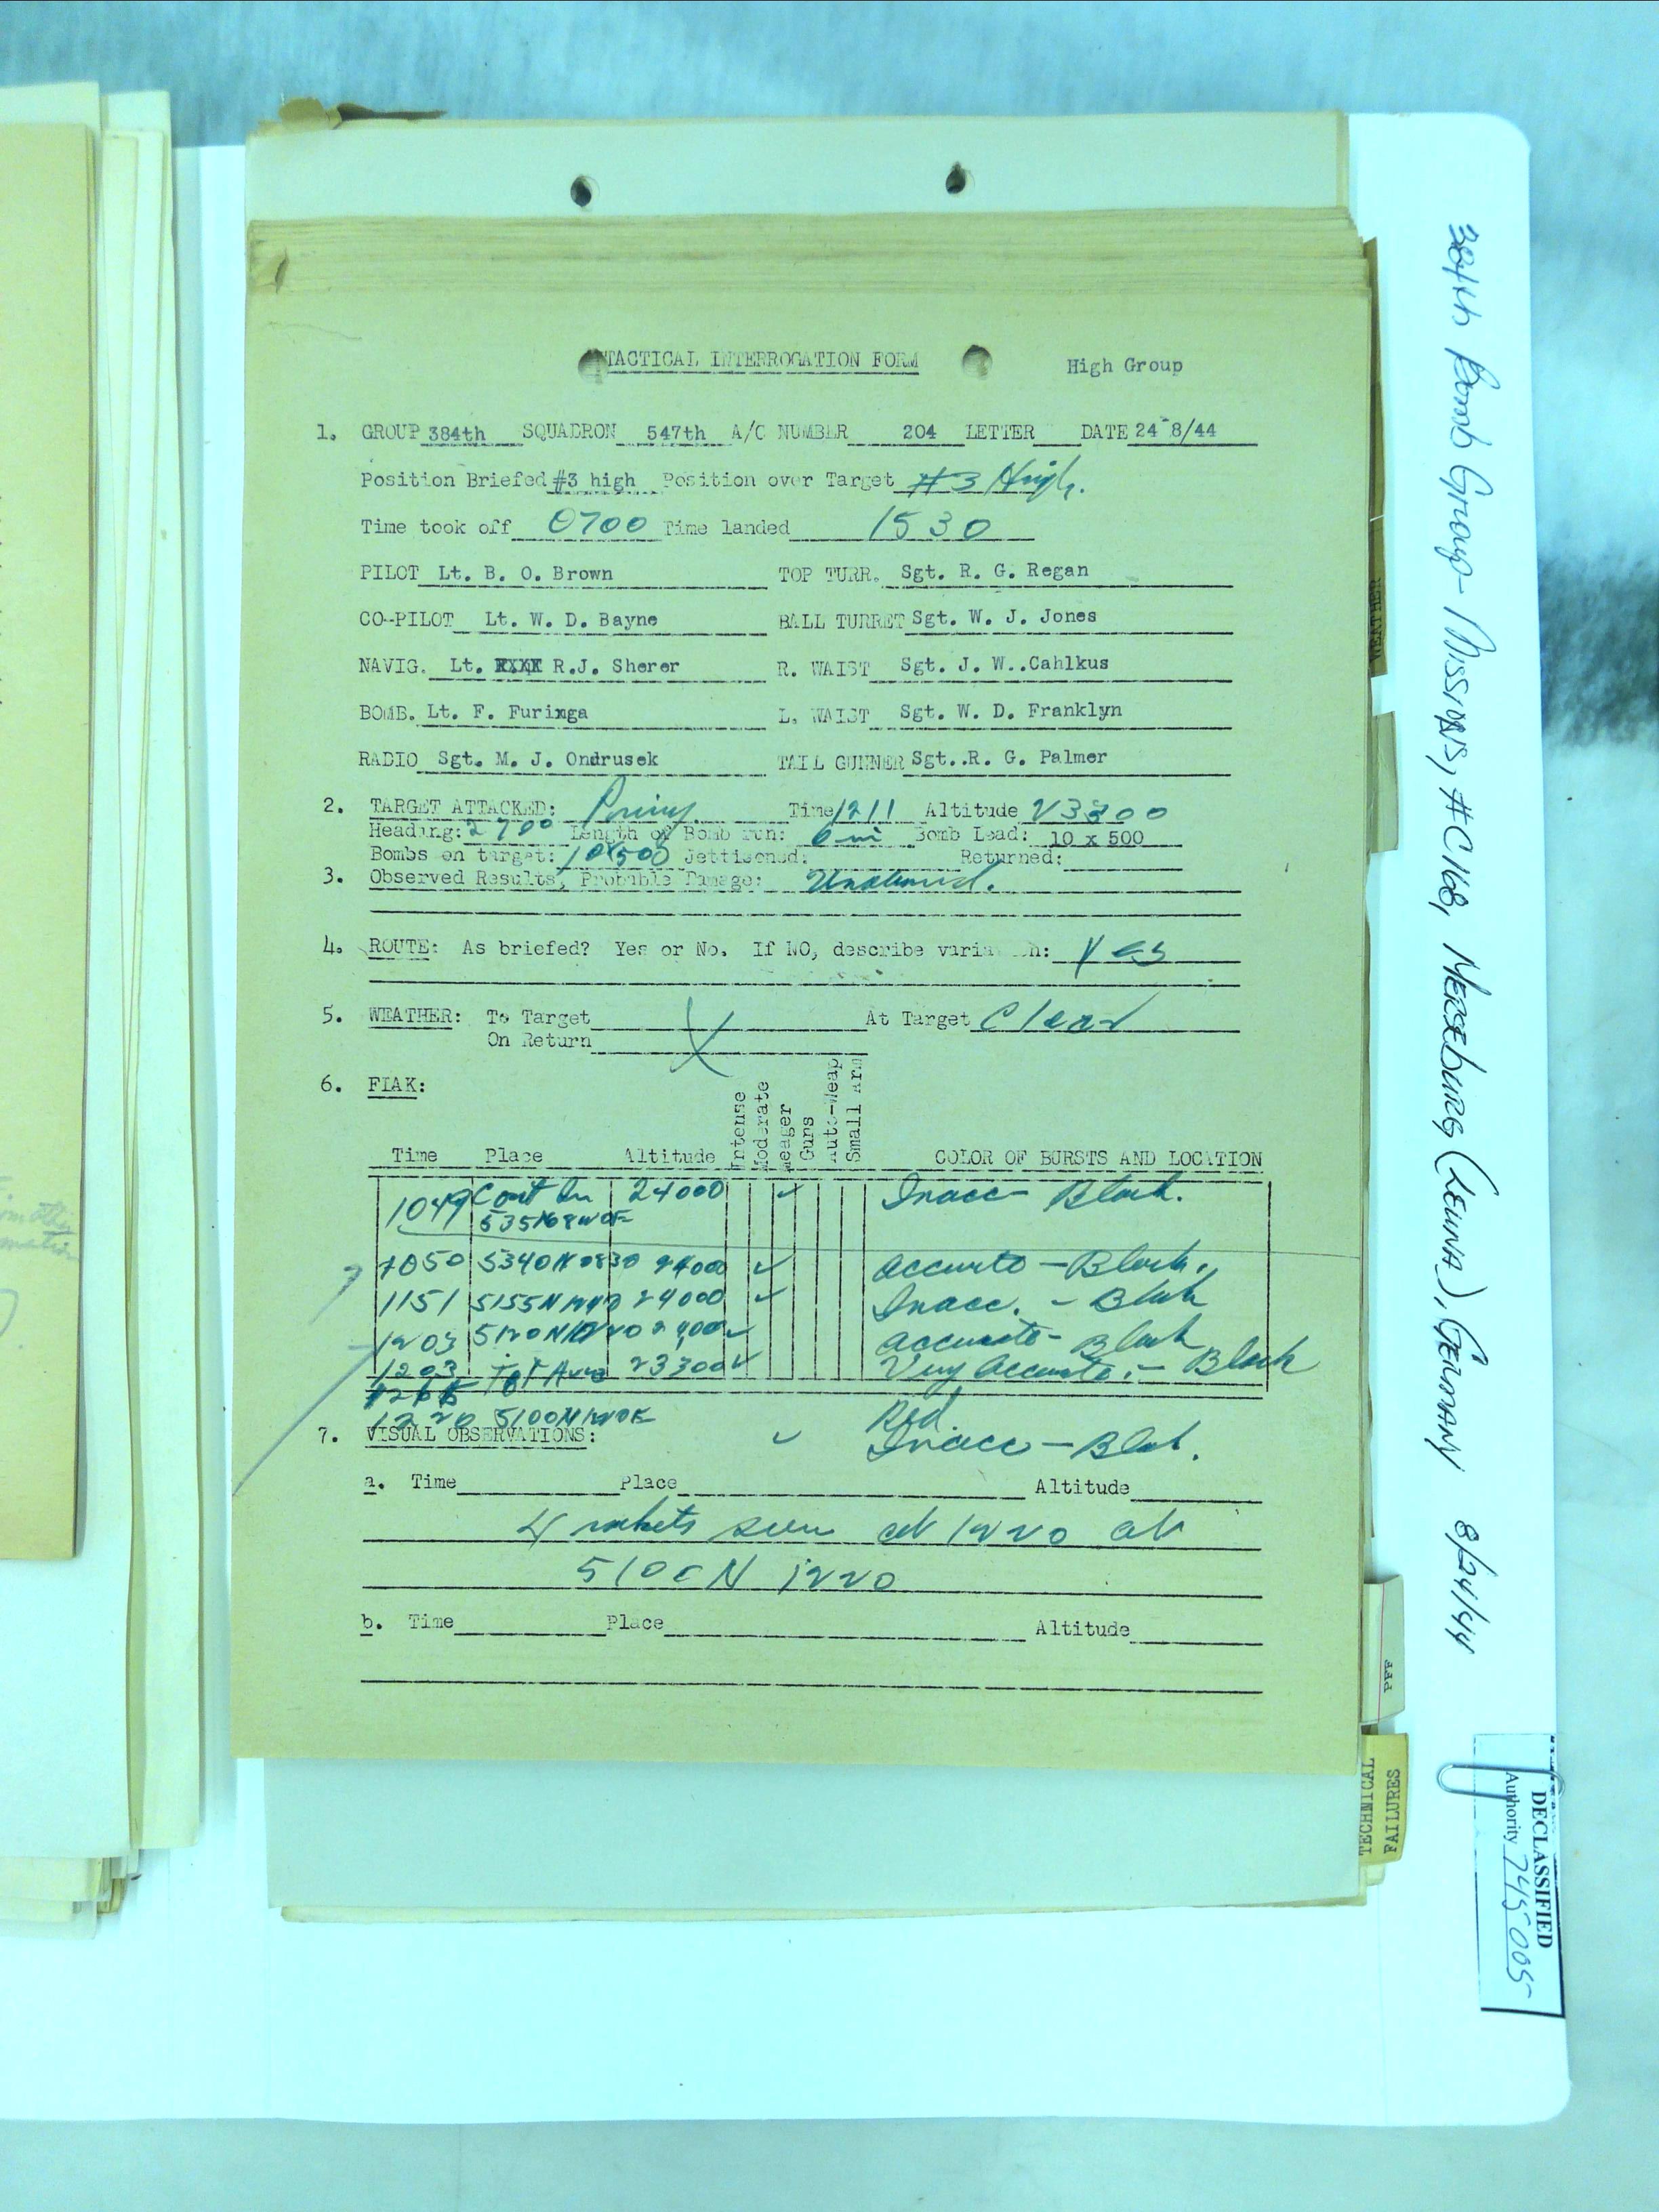 TACTICAL INTERROGATION FORM High Group
1. GROUP 384th SQUADRON 547th A/C NUMBER 204 LETTER DATE 24 8/44
Position Briefed #3 high Position over Target #3 High.
Time took off 0700 Time landed 1530
PILOT Lt. B. O. Brown TOP TURR. Sgt. R. G. Regan
CO-PILOT Lt. W. D. Bayne BALL TURRET Sgt. W. J. Jones
NAVIG. Lt. R.J. Sherer R. WAIST Sgt. J. W..Cahlkus
BOMB. Lt. F. Furinga L. WAIST Sgt. W. D. Franklyn
RADIO Sgt. M. J. Ondrusek TAIL GUNNER Sgt..R. G. Palmer
2. TARGET ATTACKED: Time 1211 Altitude 23300
Heading: Length of Bomb run: Bomb Load: 10 x 500
Bombs on target: 10x500 Jettisoned: Returned:
3. Observed Results, Probable Damage: Unobserved.
4. ROUTE: As briefed? Yes or No. If NO, describe variation: Yes
5. WEATHER: To Target At Target Clear
On Return
6. FlAK:
Intense
Moderate
Meager
Guns
Auto-Weap
Small Arm
Time Place Altitude COLOR OF BURSTS AND LOCATION
1049 24000 Inacc - Black.
1050 5340N 0830 24000 ✓ accurate - Black.
1151 5155N 24000 ✓ Inacc. - Black
1203 ✓ accurate - Black
1203 23300 ✓ Very Accurate. - Black
Red.
1220 5100N 1220E
7. VISUAL OBSERVATIONS: ✓ Inacc - Black.
a. Time Place Altitude
4 rockets seen at 1220 at
5100N 1220
b. Time Place Altitude
384th Bomb Group - Missions, #C168, MERSEBURG (LEUNA), GERMANY 8/24/44
WEATHER
PFF
TECHNICAL
FAILURES
DECLASSIFIED
Authority 745005